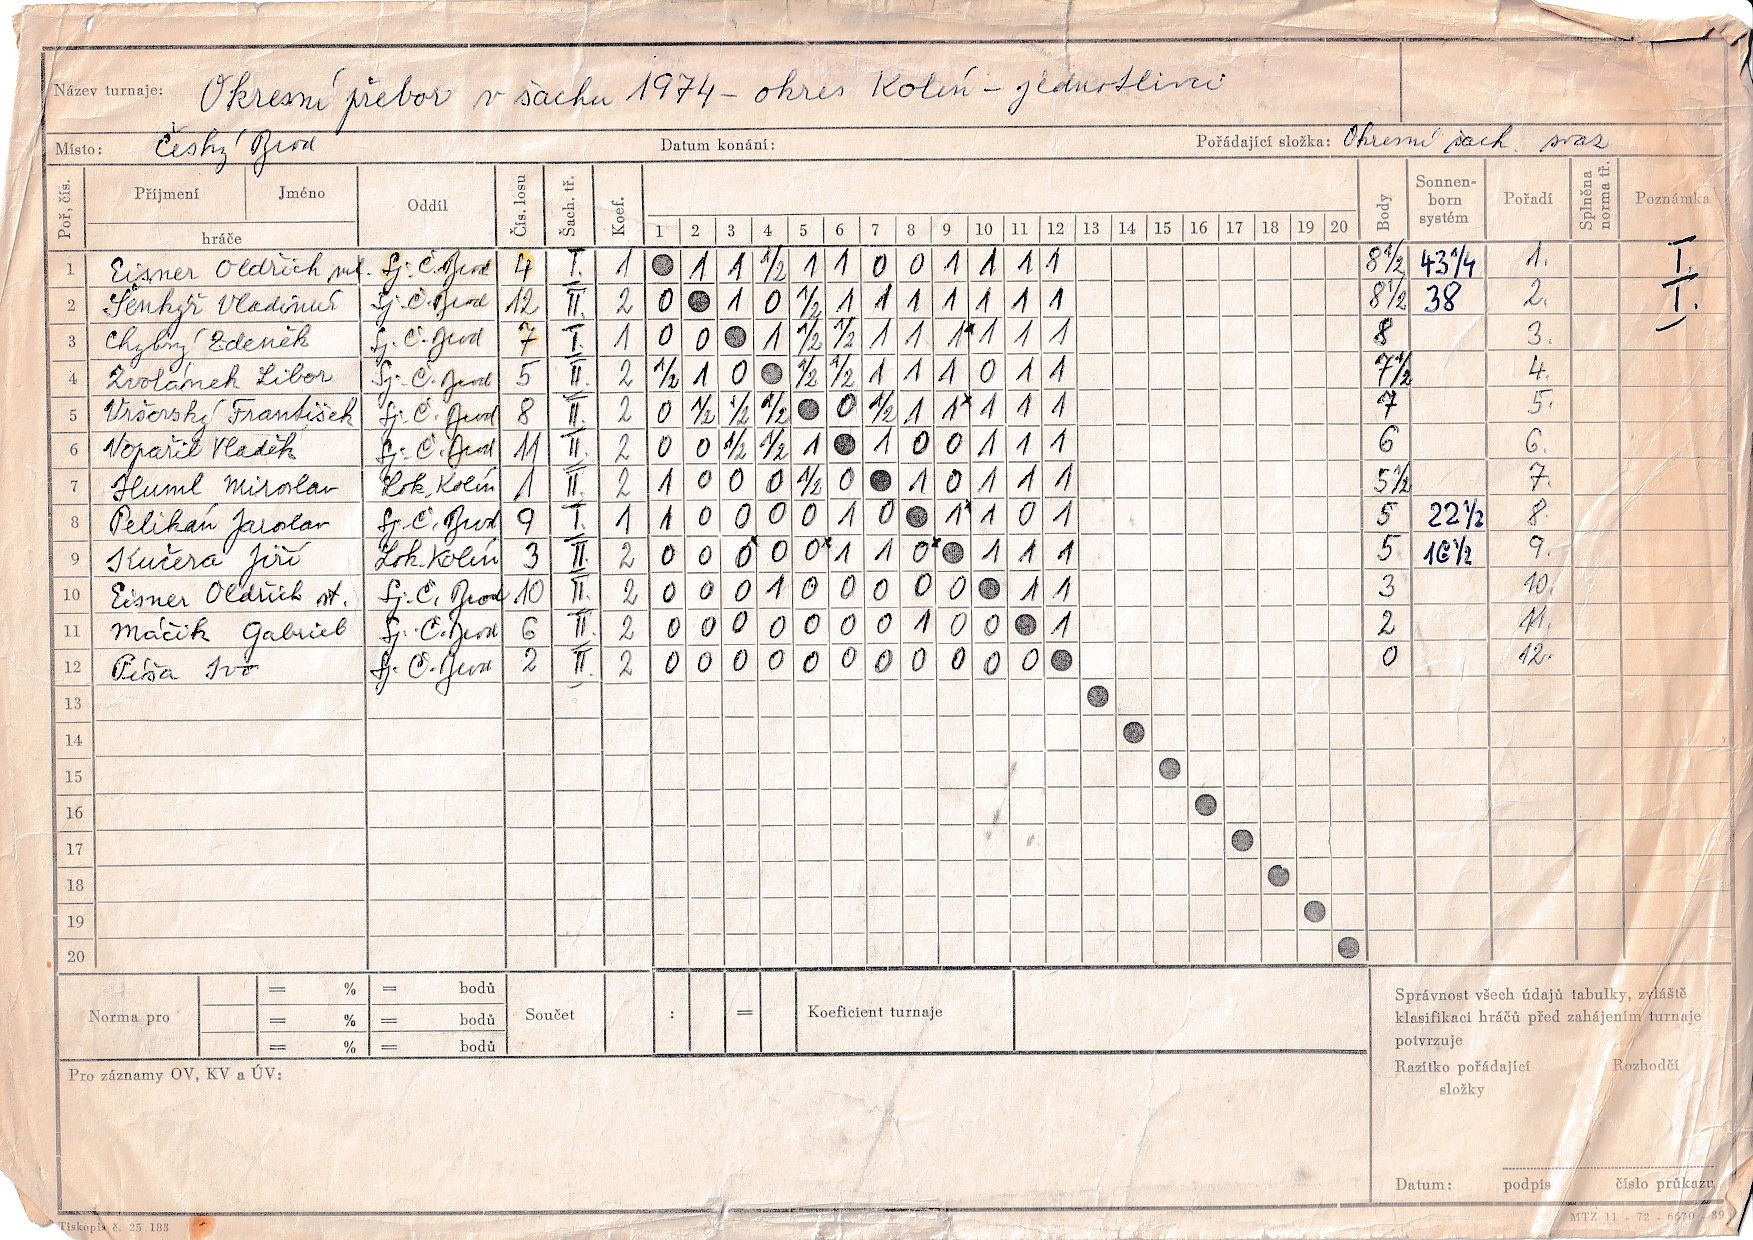 Název turnaje: Okresní přebor v šachu 1974 – okres Kolín – jednotlivci
Místo: Český Brod Datum konání: Pořádající složka: Okresní šach. svaz
Poř. čís. Příjmení Jméno hráče Oddíl Čís. losu Šach. tř. Koef. 1 2 3 4 5 6 7 8 9 10 11 12 13 14 15 16 17 18 19 20 Body Sonnenborn systém Pořadí Splněna norma tř. Poznámka
1 Eisner Oldřich ml. Sj. Č. Brod 4 I. 1 ● 1 1 1/2 1 1 0 0 1 1 1 1 8 1/2 43 1/4 1. I.
2 Šenkýř Vladimír Sj. Č. Brod 12 II. 2 0 ● 1 0 1/2 1 1 1 1 1 1 1 8 1/2 38 2. I.
3 Chybný Zdeněk Sj. Č. Brod 7 I. 1 0 0 ● 1 1/2 1/2 1 1 1x 1 1 1 8 3.
4 Zvolánek Libor Sj. Č. Brod 5 II. 2 1/2 1 0 ● 1/2 1/2 1 1 1 0 1 1 7 1/2 4.
5 Vršovský František Sj. Č. Brod 8 II. 2 0 1/2 1/2 1/2 ● 0 1/2 1 1x 1 1 1 7 5.
6 Vopařil Vladěk Sj. Č. Brod 11 II. 2 0 0 1/2 1/2 1 ● 1 0 0 1 1 1 6 6.
7 Huml Miroslav Lok. Kolín 1 II. 2 1 0 0 0 1/2 0 ● 1 0 1 1 1 5 1/2 7.
8 Pelikán Jaroslav Sj. Č. Brod 9 I. 1 1 0 0 0 0 1 0 ● 1x 1 0 1 5 22 1/2 8.
9 Kučera Jiří Lok. Kolín 3 II. 2 0 0 0x 0 0x 1 1 0x ● 1 1 1 5 16 1/2 9.
10 Eisner Oldřich st. Sj. Č. Brod 10 II. 2 0 0 0 1 0 0 0 0 0 ● 1 1 3 10.
11 Máčik Gabriel Sj. Č. Brod 6 II. 2 0 0 0 0 0 0 0 1 0 0 ● 1 2 11.
12 Píša Ivo Sj. Č. Brod 2 II. 2 0 0 0 0 0 0 0 0 0 0 0 ● 0 12.
13 ●
14 ●
15 ●
16 ●
17 ●
18 ●
19 ●
20 ●
Norma pro = % = bodů
= % = bodů
= % = bodů
Součet : = Koeficient turnaje
Správnost všech údajů tabulky, zvláště
klasifikaci hráčů před zahájením turnaje
potvrzuje
Razítko pořádající složky Rozhodčí
Pro záznamy OV, KV a ÚV:
Datum: podpis číslo průkazu
Tiskopis č. 25 183